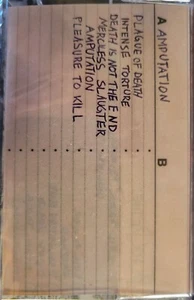 A AMPUTATION
B
PLAGUE OF DEATH
INTENSE TORTURE
DEATH IS NOT THE END
MERCILESS SLAUGHTER
AMPUTATION
PLEASURE TO KILL